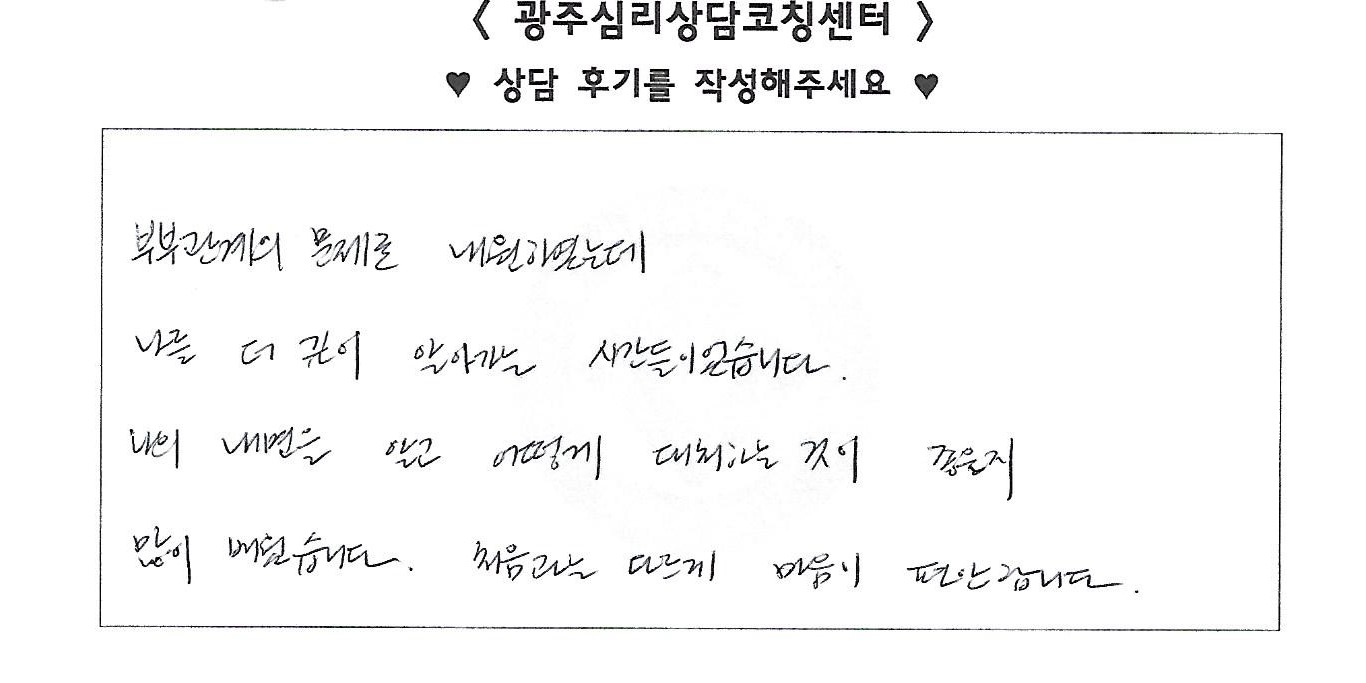 < 광주심리상담코칭센터 >
♥ 상담 후기를 작성해주세요 ♥
부부관계의 문제로 내원하였는데
나를 더 깊이 알아가는 시간들이었습니다.
나의 내면을 알고 어떻게 대처하는 것이 좋을지
많이 배웠습니다. 처음과는 다르게 마음이 편안합니다.